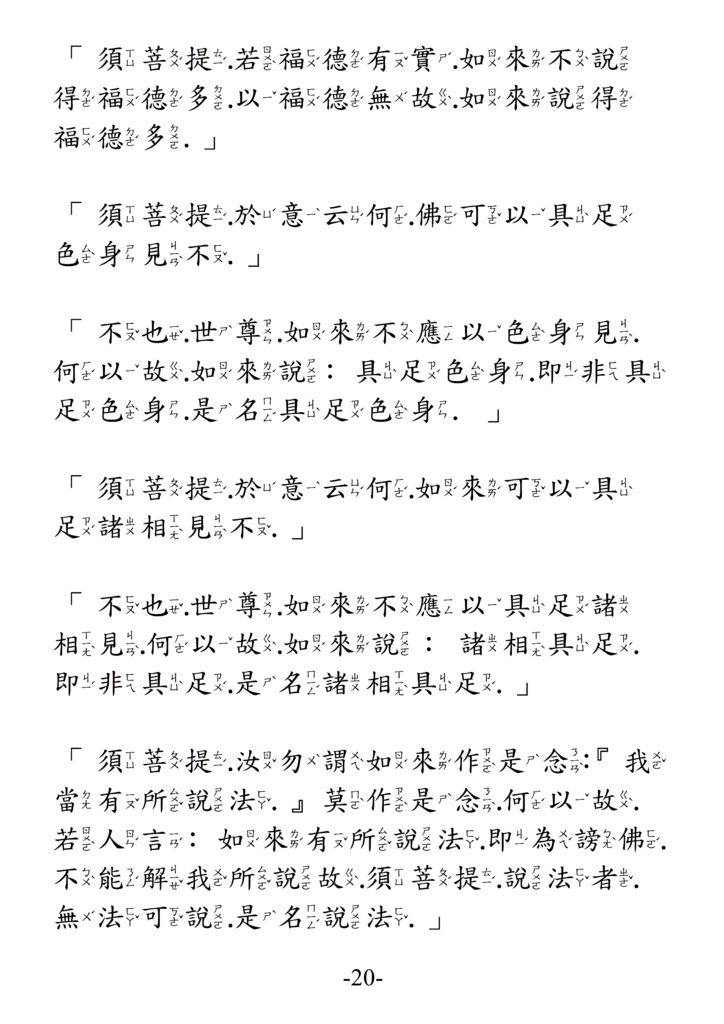 「 須菩提.若福德有實.如來不說
得福德多.以福德無故.如來說得
福德多. 」
「 須菩提.於意云何.佛可以具足
色身見不. 」
「 不也.世尊.如來不應以色身見.
何以故.如來說： 具足色身.即非具
足色身.是名具足色身. 」
「 須菩提.於意云何.如來可以具
足諸相見不. 」
「 不也.世尊.如來不應以具足諸
相見.何以故.如來說： 諸相具足.
即非具足.是名諸相具足. 」
「 須菩提.汝勿謂如來作是念:『 我
當有所說法. 』莫作是念.何以故.
若人言： 如來有所說法.即為謗佛.
不能解我所說故.須菩提.說法者.
無法可說.是名說法. 」
-20-